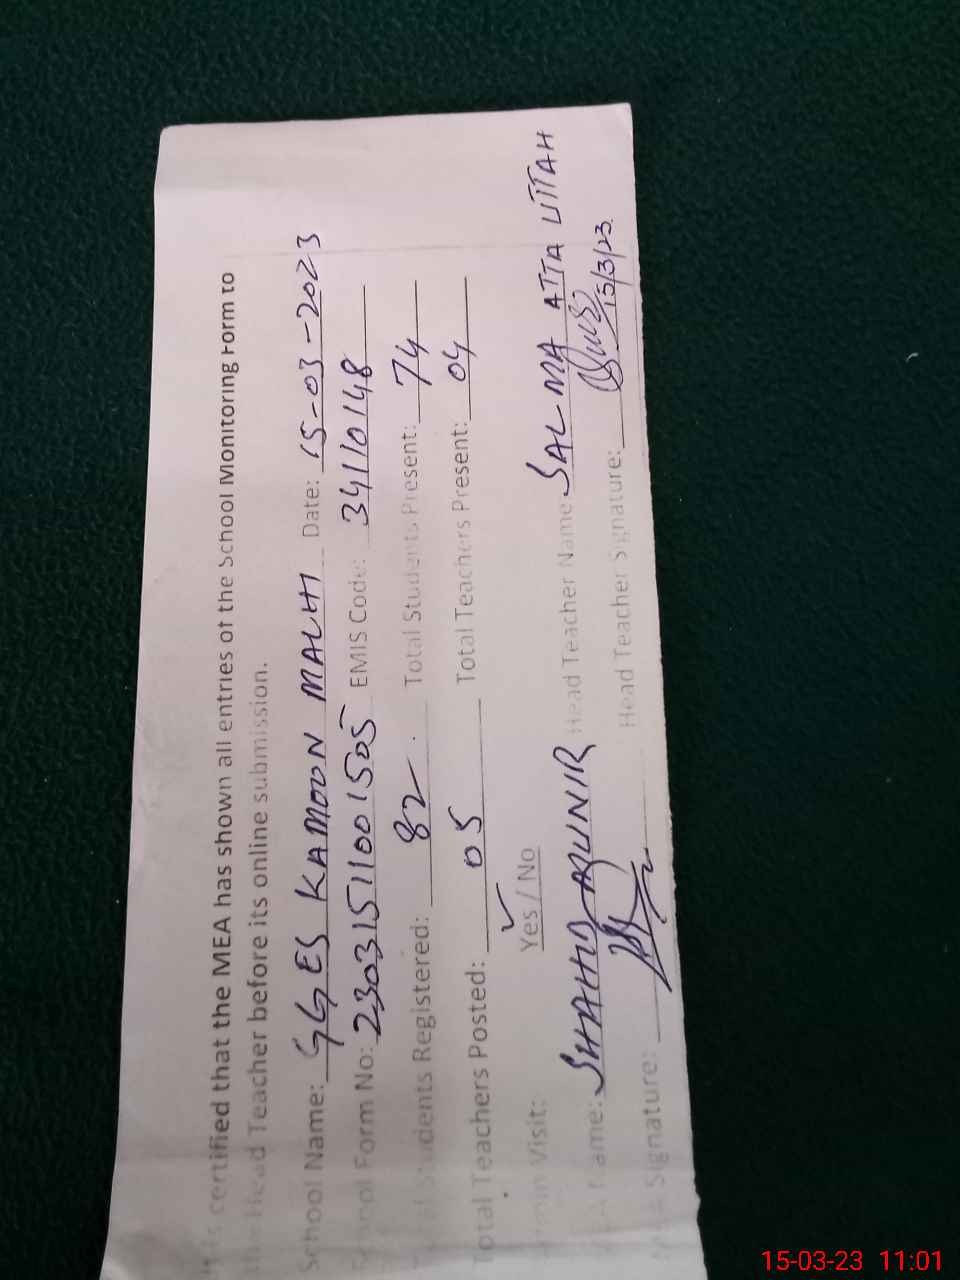 It is certified that the MEA has shown all entries of the School Monitoring Form to
the Head Teacher before its online submission.
School Name: GGES KAMOON MALHI Date: 15-03-2023
School Form No: 23031511001505 EMIS Code: 34110148
Total Students Registered: 82 Total Students Present: 74
Total Teachers Posted: 05 Total Teachers Present: 04
Visit: Yes / No
Name: SHAHID Head Teacher Name: SALMA ATTA
Signature: Head Teacher Signature: 15/3/23.
15-03-23 11:01